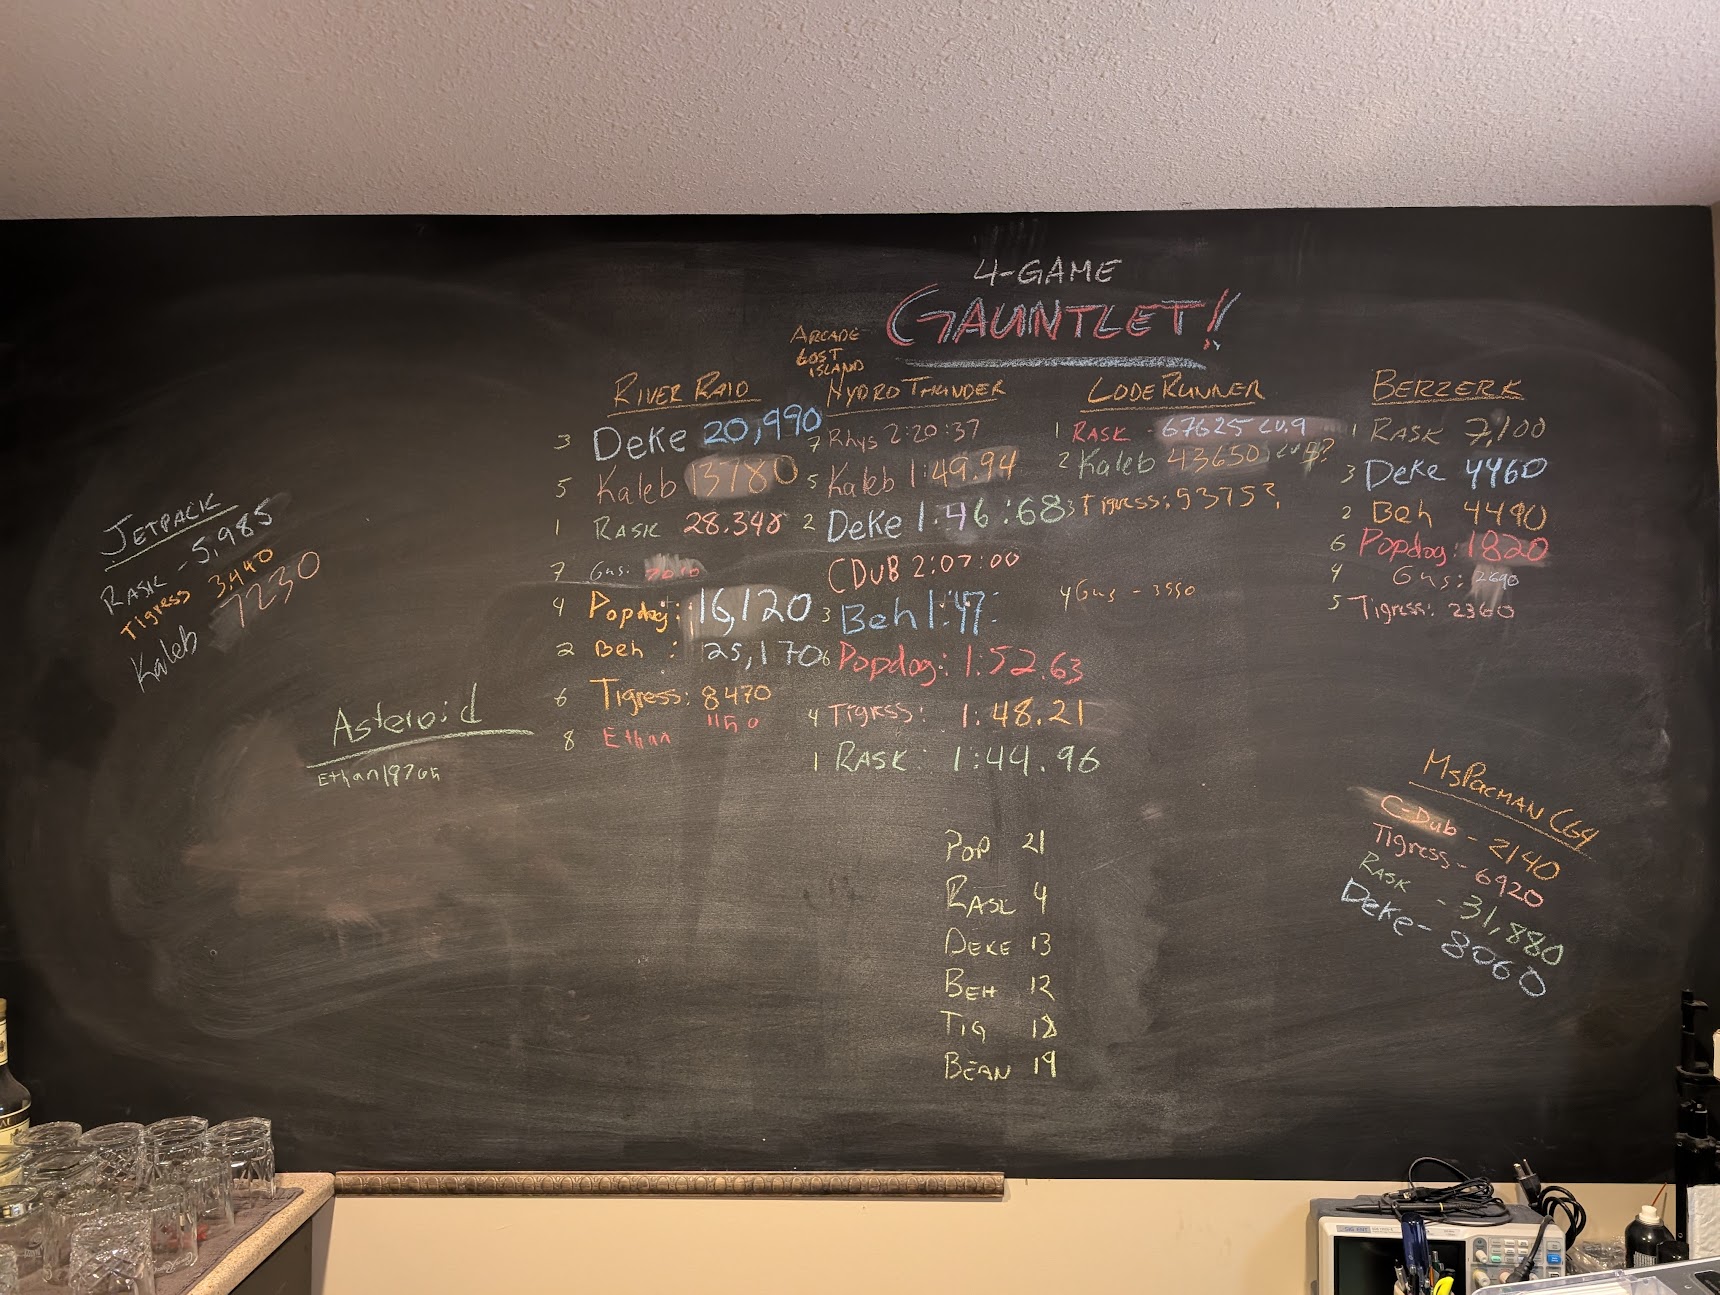 4-GAME
GAUNTLET!!
ARCADE
LOST
ISLAND
RIVER RAID
3 Deke 20,990
5 Kaleb 13780
1 RASK 28.340
7 Gus:
4 Popdog: 16,120
2 Beh : 25,170
6 Tigress: 8470
8 Ethan 1150
HYDRO THUNDER
7 Rhys 2:20:37
5 Kaleb 1:49.94
2 Deke 1:46:68
CDUB 2:07:00
3 Beh 1:47:
6 Popdog: 1:52.63
4 Tigress: 1:48.21
1 RASK: 1:44.96
LODE RUNNER
1 RASK - 67625 LV.9
2 Kaleb 43650 LV
3 Tigress: 9375?
4 Gus - 3550
BERZERK
1 RASK 7,100
3 Deke 4460
2 Beh 4490
6 Popdog: 1820
4 Gus: 2690
5 Tigress: 2360
JETPACK
RASK - 5,985
Tigress 3,440
Kaleb 7230
Asteroid
Ethan 19765
POP 21
RASK 4
DEKE 13
BEH 12
TIG 18
BEAN 19
MSPACMAN C64
C-Dub - 2140
Tigress - 6920
RASK - 31,880
Deke - 8060